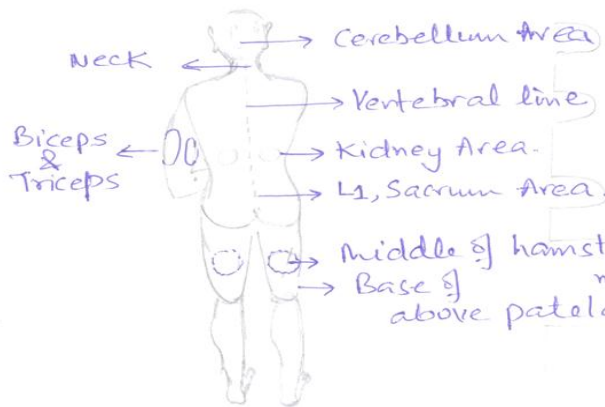 Cerebellum Area
Neck
Vertebral line
Biceps
&
Triceps
Kidney Area.
L1, Sacrum Area
Middle of hamst
Base of
above patela